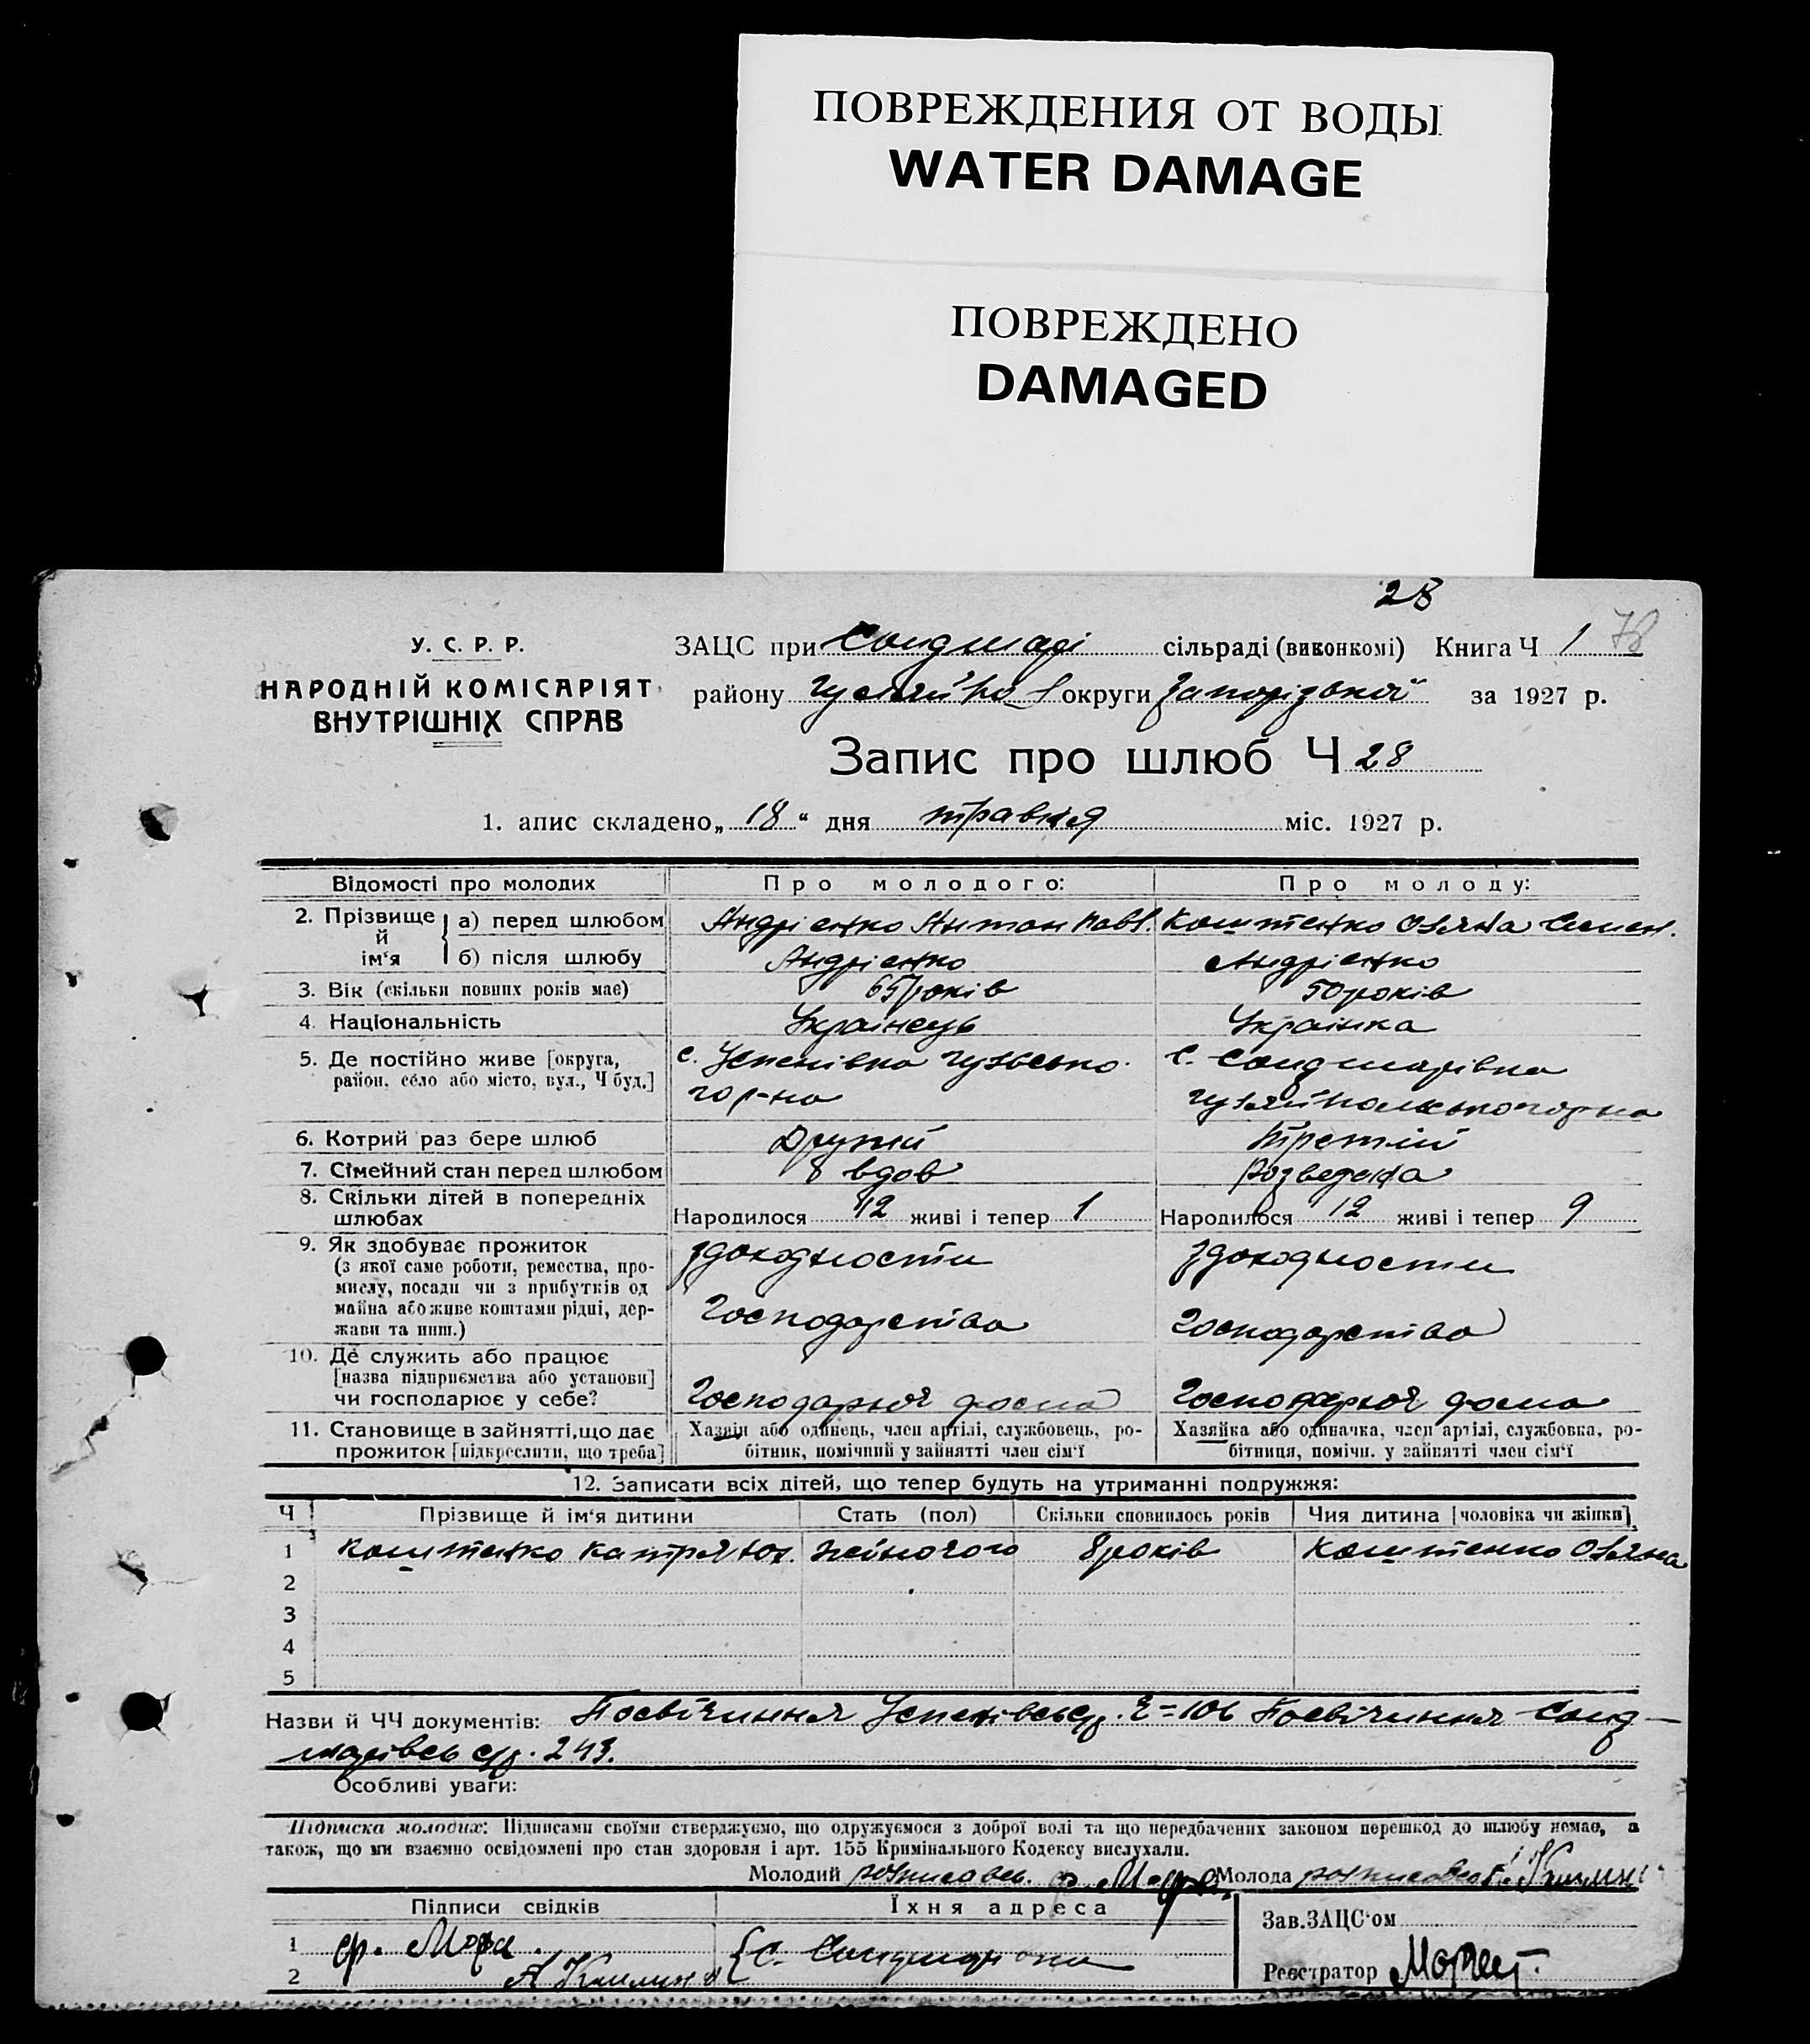 ПОВРЕЖДЕНИЯ ОТ ВОДЫ
WATER DAMAGE
ПОВРЕЖДЕНО
DAMAGED
28
У. С. Р. Р.
НАРОДНІЙ КОМІСАРІЯТ
ВНУТРІШНІХ СПРАВ
ЗАЦС при сільраді (виконкомі) Книга Ч 1 78
району округи Запорізької за 1927 р.
Запис про шлюб Ч 28
1. апис складено „ 18 “ дня травня міс. 1927 р.
Відомості про молодих Про молодого: Про молоду:
2. Прізвище й ім‘я а) перед шлюбом Андрієнко Антон Павл. Коштенко Семен.
б) після шлюбу Андрієнко Андрієнко
3. Вік (скільки повних років має) 65 років 50 років
4. Національність Українець Українка
5. Де постійно живе [округа, с. Успенівка с.
район, село або місто, вул., Ч буд.] го р-на
6. Котрий раз бере шлюб Другий Третій
7. Сімейний стан перед шлюбом вдов Розведена
8. Скільки дітей в попередніх
шлюбах Народилося 12 живі і тепер 1 Народилося 12 живі і тепер 9
9. Як здобуває прожиток здоходности здоходности
(з якої саме роботи, ремества, про-
мислу, посади чи з прибутків од
майна або живе коштами рідні, дер- Господарства Господарства
жави та инш.)
10. Де служить або працює
[назва підприємства або установи]
чи господарює у себе? Господарює дома Господарює дома
11. Становище в зайнятті, що дає Хазяін або одинець, член артілі, службовець, ро- Хазяйка або одиначка, член артілі, службовка, ро-
прожиток [підкреслити, що треба] бітник, помічний у зайнятті член сім‘ї бітниця, помічн. у зайнятті член сім‘ї
12. Записати всіх дітей, що тепер будуть на утриманні подружжя:
Ч Прізвище й ім‘я дитини Стать (пол) Скільки сповнилось років Чия дитина [чоловіка чи жінки]
1 Коштенко Жіночого 8 років Коштенко
2
3
4
5
Назви й ЧЧ документів: Посвічиння 106 Посвічиння
243.
Особливі уваги:
Підписка молодих: Підписами своїми стверджуємо, що одружуємося з доброї волі та що передбачених законом перешкод до шлюбу немає, а
також, що ми взаємно освідомлені про стан здоровля і арт. 155 Кримінального Кодексу вислухали.
Молодий Молода
Підписи свідків Їхня адреса
Зав. ЗАЦС‘ом
1
2
Реєстратор